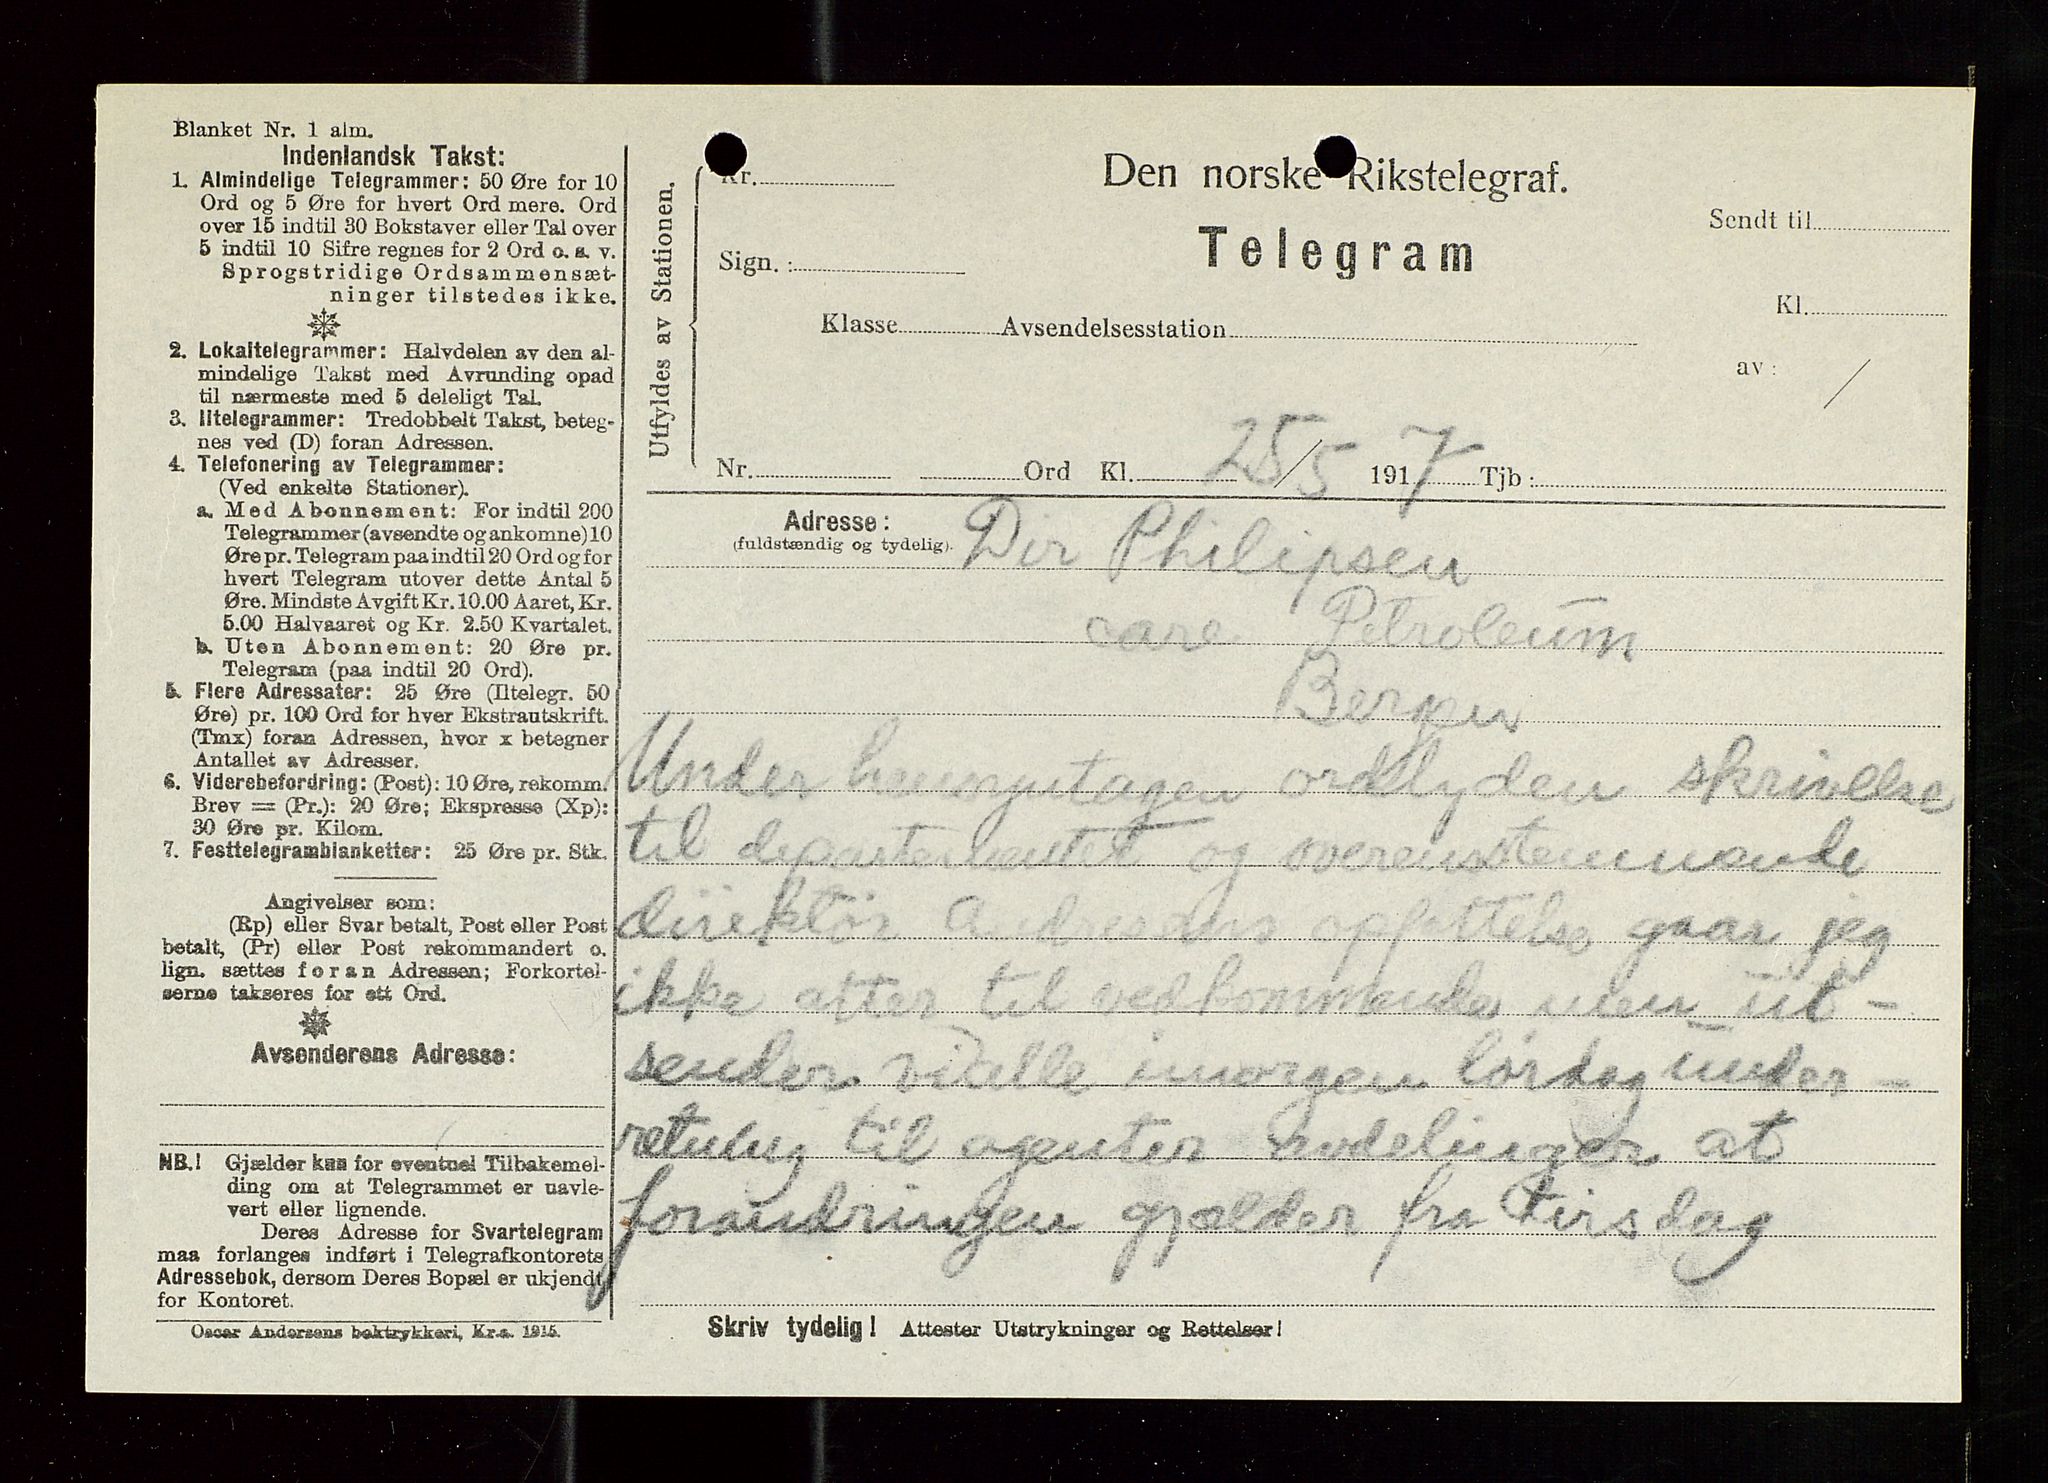 Blanket Nr. 1 alm.
Indenlandsk Takst:
1. Almindelige Telegrammer: 50 Øre for 10
Ord og 5 Øre for hvert Ord mere. Ord
over 15 indtil 30 Bokstaver eller Tal over
5 indtil 10 Sifre regnes for 2 Ord o. s. v.
Sprogstridige Ordsammensæt-
ninger tilstedes ikke.
2. Lokaltelegrammer: Halvdelen av den al-
mindelige Takst med Avrunding opad
til nærmeste med 5 deleligt Tal.
3. Iltelegrammer: Tredobbelt Takst, beteg-
nes ved (D) foran Adressen.
4. Telefonering av Telegrammer:
(Ved enkelte Stationer).
a. Med Abonnement: For indtil 200
Telegrammer (avsendte og ankomne) 10
Øre pr. Telegram paa indtil 20 Ord og for
hvert Telegram utover dette Antal 5
Øre. Mindste Avgift Kr. 10.00 Aaret, Kr.
5.00 Halvaaret og Kr. 2.50 Kvartalet.
b. Uten Abonnement: 20 Øre pr.
Telegram (paa indtil 20 Ord).
5. Flere Adressater: 25 Øre (Iltelegr. 50
Øre) pr. 100 Ord for hver Ekstrautskrift.
(Tmx) foran Adressen, hvor x betegner
Antallet av Adresser.
6. Viderebefordring: (Post): 10 Øre, rekomm.
Brev = (Pr.): 20 Øre; Ekspresse (Xp):
30 Øre pr. Kilom.
7. Festtelegramblanketter: 25 Øre pr. Stk.
Angivelser som:
(Rp) eller Svar betalt, Post eller Post
betalt, (Pr) eller Post rekommandert o.
lign. sættes foran Adressen; Forkortel-
serne takseres for ett Ord.
Avsenderens Adresse:
NB.! Gjælder kun for eventuel Tilbakemel-
ding om at Telegrammet er uavle-
vert eller lignende.
Deres Adresse for Svartelegram
maa forlanges indført i Telegrafkontorets
Adressebok, dersom Deres Bopæl er ukjendt
for Kontoret.
Oscar Andersens boktrykkeri, Kr.a. 1915.
Utfyldes av Stationen.
Kr.
Den norske Rikstelegraf.
Sendt til
Sign.:
Telegram
Kl.
Klasse Avsendelsesstation
av: /
Nr. Ord Kl. 25/5 1917 Tjb:
Adresse: Dir Philipsen
(fuldstændig og tydelig).
care Petroleum
Bergen
Under hensyntagen ordlyden skrivelse
til departementet og overenstemmende
direktør Andresens opfattelse gaar jeg
ikke atter til vedkommende men ut-
sender imorgen lørdag under-
retning til agenter avdelinger at
forandringen gjælder fra tirsdag
Skriv tydelig! Attester Utstrykninger og Rettelser!